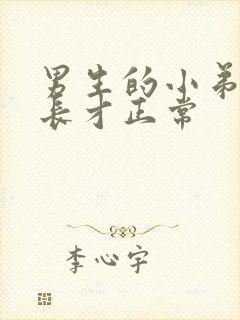 男生的小弟
长才正常
李心宇